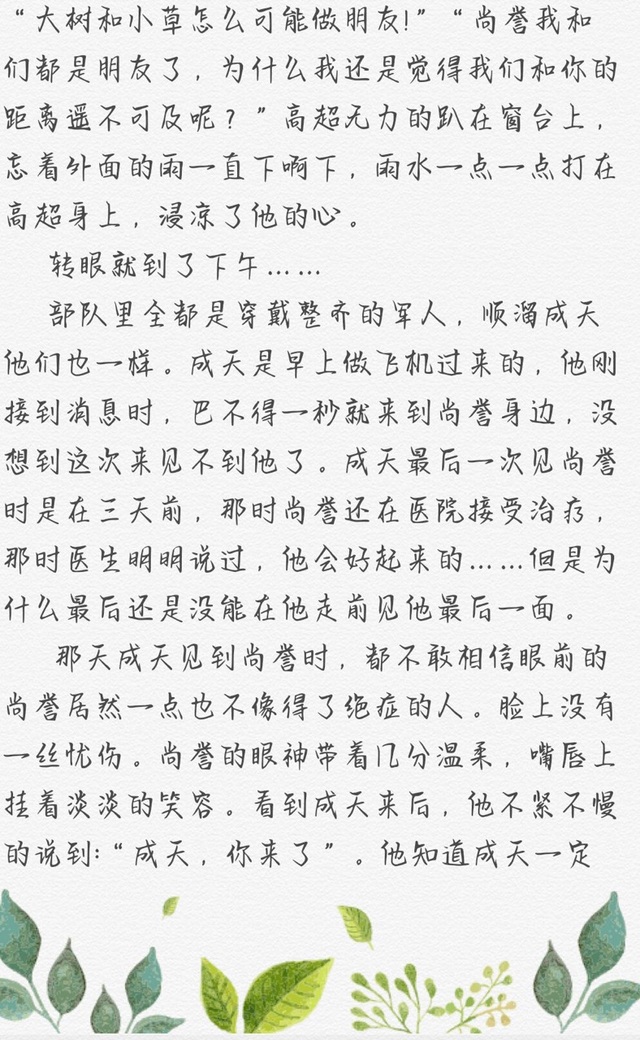 “大树和小草怎么可能做朋友！”“尚誉我和
们都是朋友了，为什么我还是觉得我们和你的
距离遥不可及呢？”高超无力的趴在窗台上，
忘着外面的雨一直下啊下，雨水一点一点打在
高超身上，浸凉了他的心。
转眼就到了下午……
部队里全都是穿戴整齐的军人，顺溜成天
他们也一样。成天是早上做飞机过来的，他刚
接到消息时，巴不得一秒就来到尚誉身边，没
想到这次来见不到他了。成天最后一次见尚誉
时是在三天前，那时尚誉还在医院接受治疗，
那时医生明明说过，他会好起来的……但是为
什么最后还是没能在他走前见他最后一面。
那天成天见到尚誉时，都不敢相信眼前的
尚誉居然一点也不像得了绝症的人。脸上没有
一丝忧伤。尚誉的眼神带着几分温柔，嘴唇上
挂着淡淡的笑容。看到成天来后，他不紧不慢
的说到:“成天，你来了”。他知道成天一定